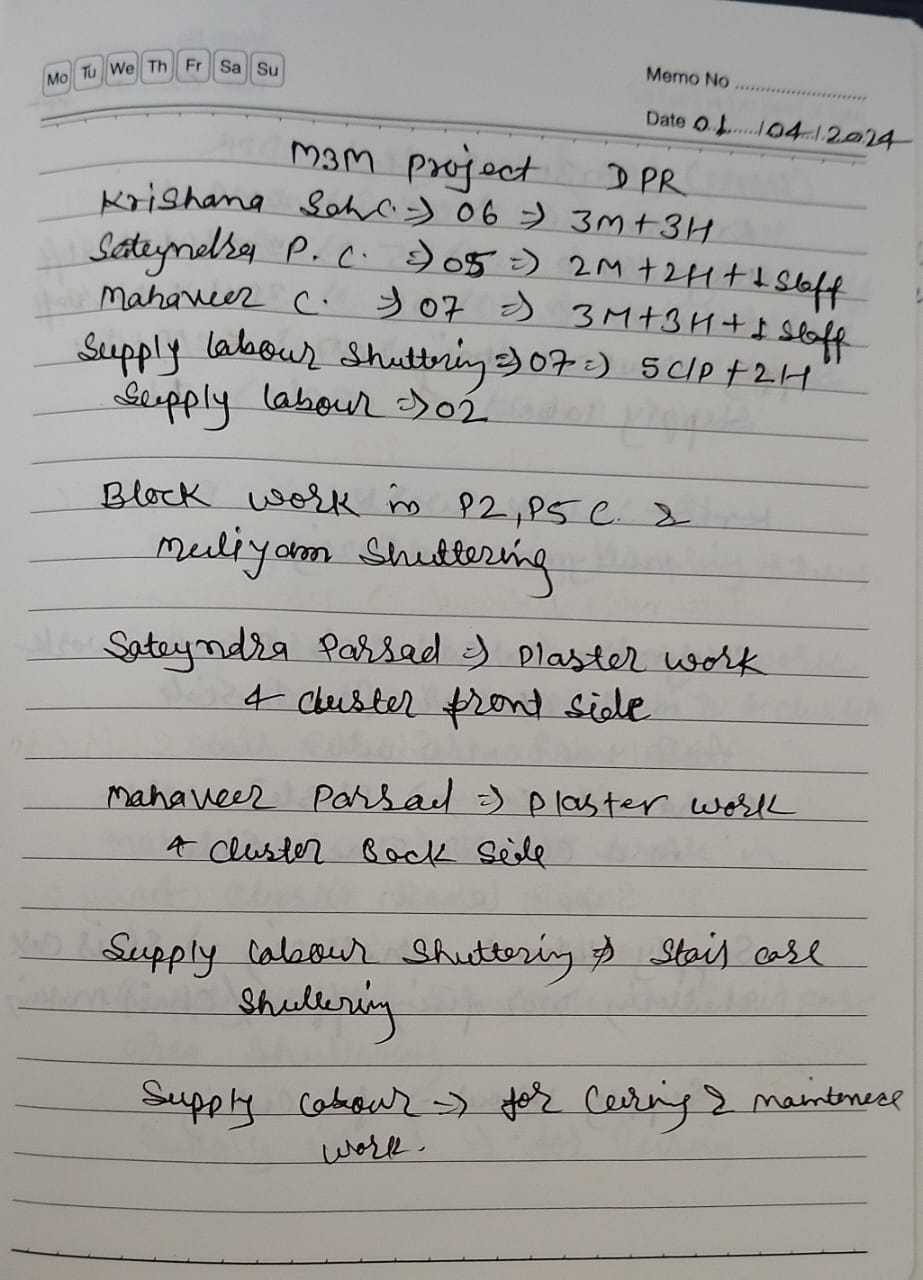 Mo Tu We Th Fr Sa Su
Memo No
Date 01/04/2024
M3M project DPR
Krishana Sah C. => 06 => 3M+3H
Sateyndra P. C. => 05 => 2M+2H+1 Staff
Mahaveer C. => 07 => 3M+3H+1 Staff
Supply labour Shuttring => 07 => 5 C/P +2H
Supply labour => 02
Block work in P2, P5 C. &
muliyam Shuttering
Sateyndra Parsad => Plaster work
4 cluster front side
Mahaveer Parsad => Plaster work
4 cluster Back Side
Supply labour Shuttering => Stair case
Shuttering
Supply labour -> for Curing & maintenece
work.